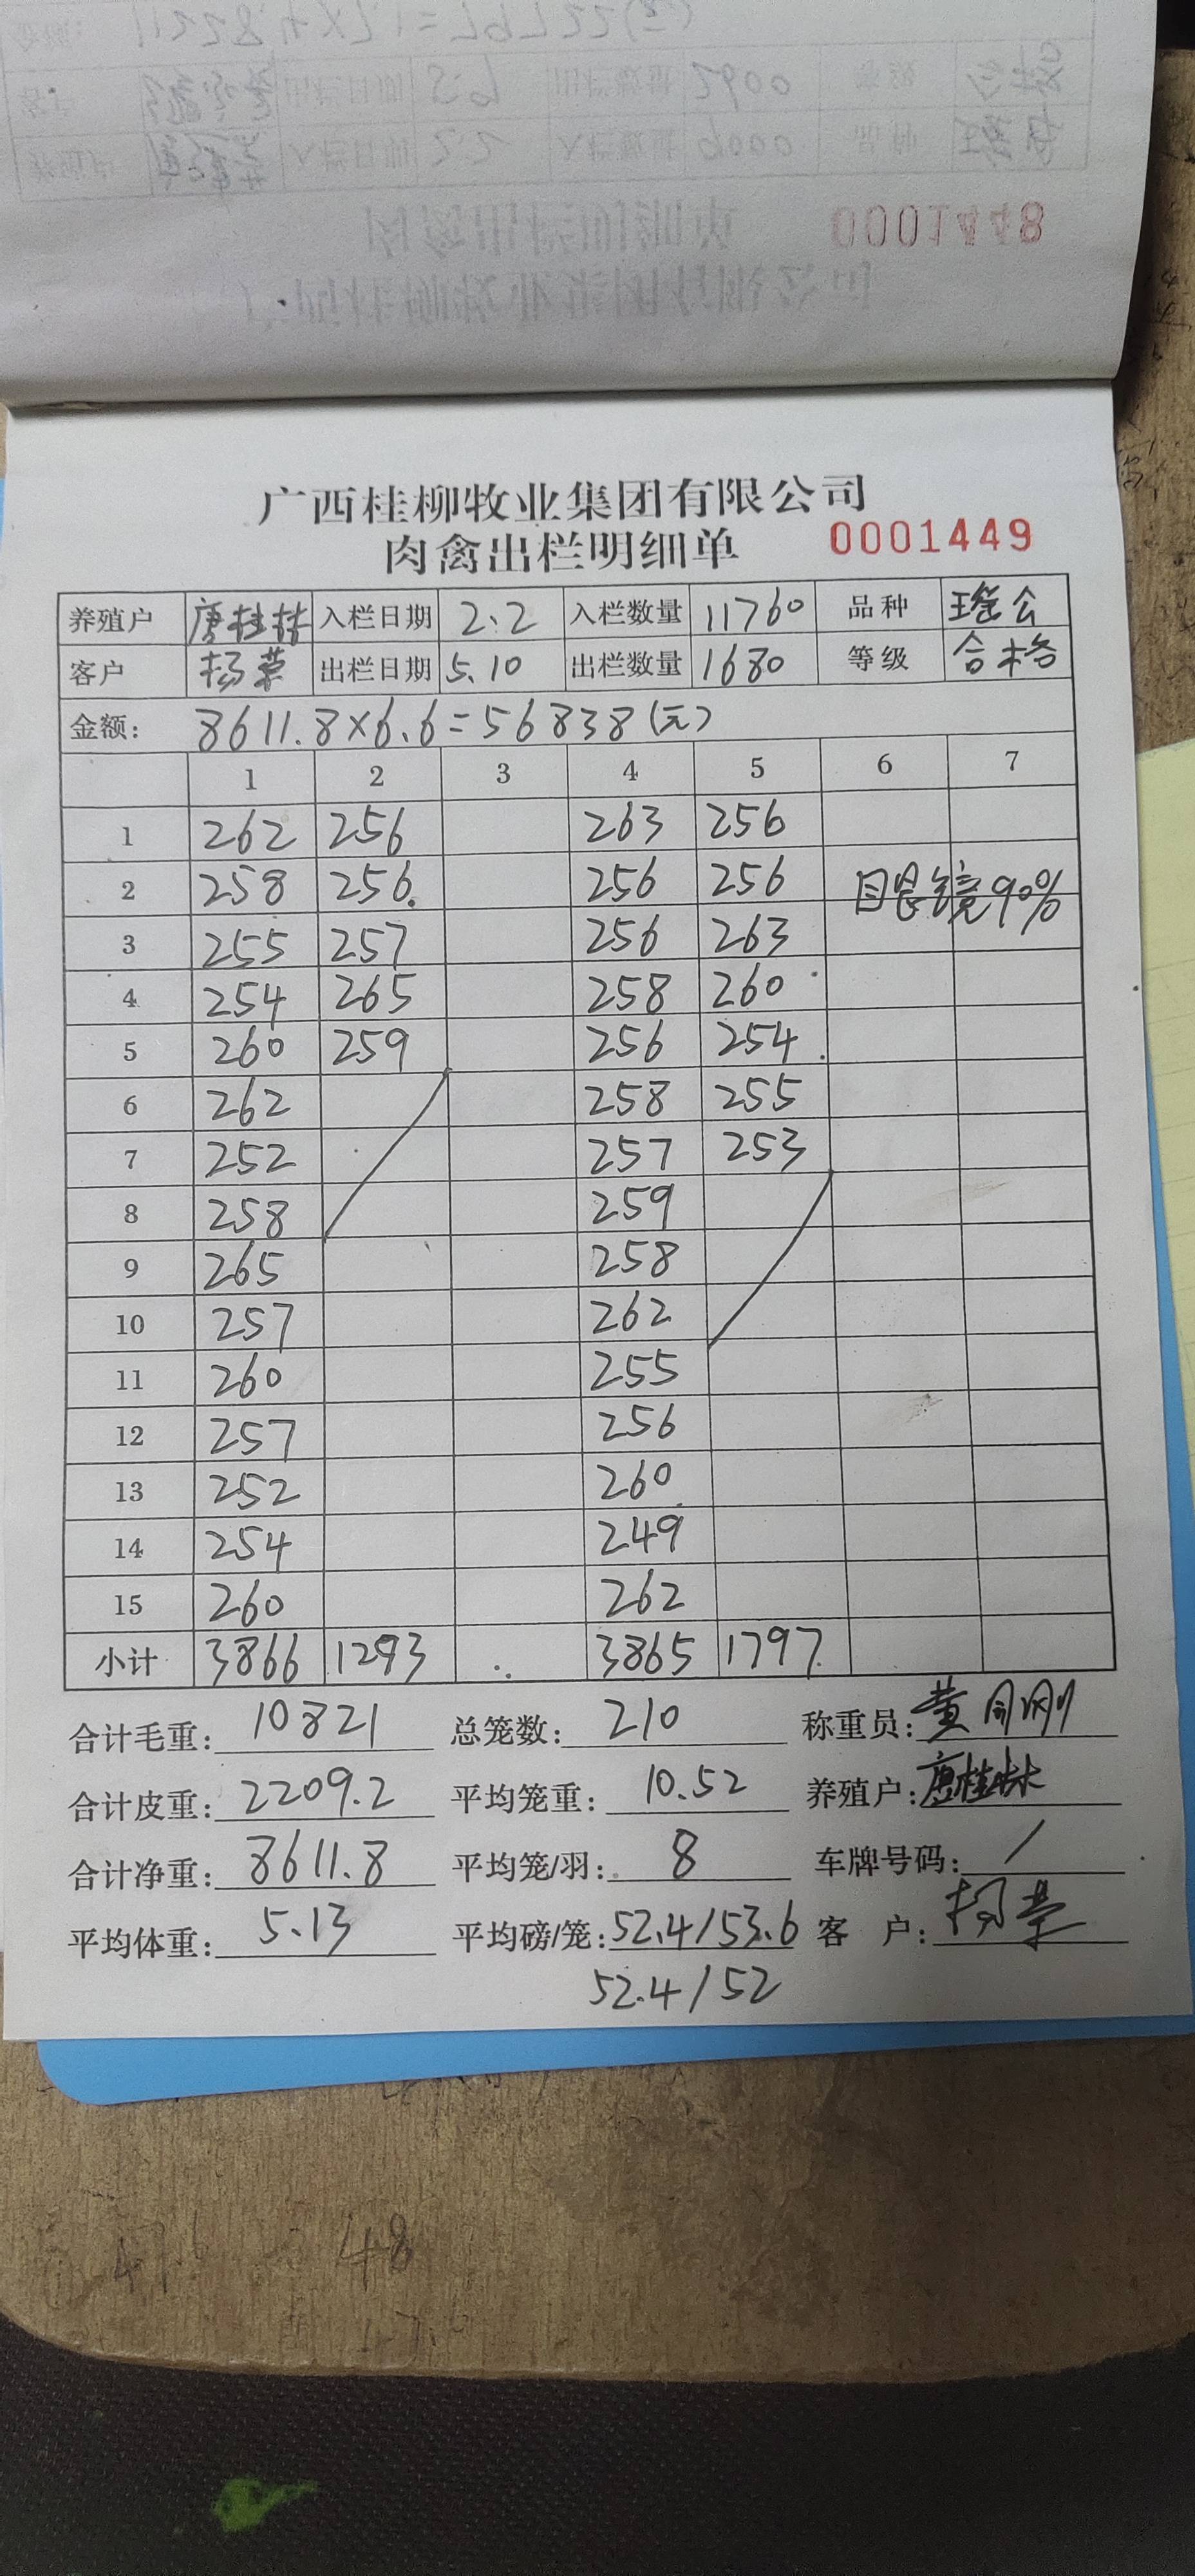 0001448
广西桂柳牧业集团有限公司
肉禽出栏明细单 0001449
养殖户 唐桂林 入栏日期 2.2 入栏数量 11760 品种 瑶公
客户 杨荣 出栏日期 5.10 出栏数量 1680 等级 合格
金额: 8611.8×6.6=56838(元)
1 2 3 4 5 6 7
1 262 256 263 256
2 258 256. 256 256 眼镜90%
3 255 257 256 263
4 254 265 258 260
5 260 259 256 254.
6 262 258 255
7 252 257 253
8 258 259
9 265 258
10 257 262
11 260 255
12 257 256
13 252 260
14 254 249
15 260 262
小计 3866 1293 3865 1797
合计毛重: 10821 总笼数: 210 称重员:
合计皮重: 2209.2 平均笼重: 10.52 养殖户: 唐桂林
合计净重: 8611.8 平均笼/羽: 8 车牌号码: /
平均体重: 5.13 平均磅/笼: 52.4/53.6 客 户: 杨荣
52.4/52
48